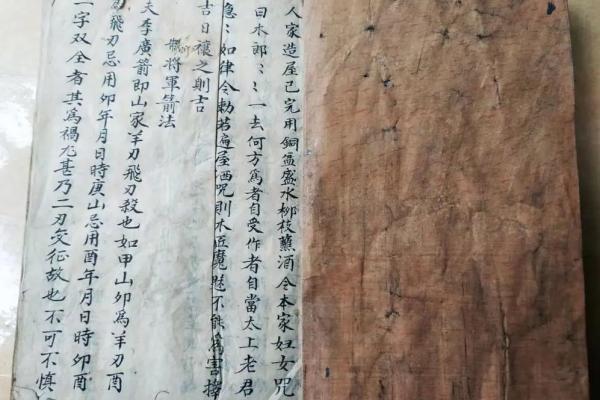 人家造屋已完用銅盆盛水柳枝蘸洒令本家妇女咒
曰木郎〻〻一去何方為者自受作者自當太上老君
急〻如律令勅若遍屋洒呪則木匠魘魅不能為害擇
吉日禳之則吉
將軍箭法
夫李廣箭即山家羊刃飛刃殺也如甲山卯為羊刃酉
為飛刃忌用卯年月日時庚山忌用酉年月日時卯酉
二字双全者其為禍尤甚乃二刃交征故也不可不慎